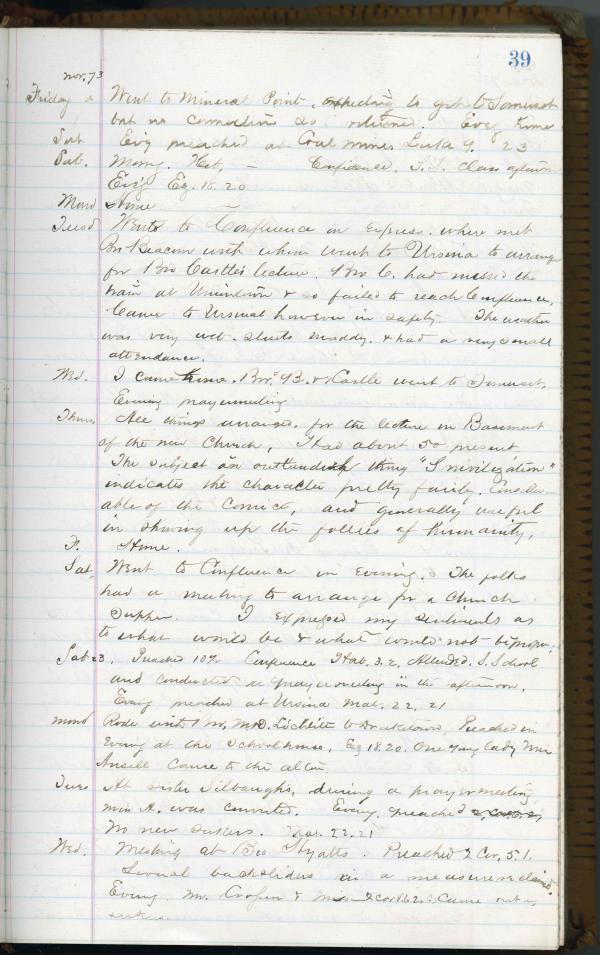 39
Nov. 73
Friday Went to Mineral Point, expecting to get to Somerset
but no connection so returned. Eve'g home
Sat Ev'g preached at Coal mines Luke 9. 23
Sab. Morng. — Confluence, S.S. class afternoon
Ev'g Ez. 18. 20
Mond Home
Tuesd Went to Confluence in Express. where met
Bro Beacom with whom went to Ursina to arrange
for Bro Castle's lecture. Bro C. had missed the
train at Uniontown & so failed to reach Confluence,
Came to Ursina however in safety. The weather
was very wet. streets muddy, & had a very small
attendance.
Wed. I came home. Bros. B. & Castle went to Somerset,
Evening prayermeeting
Thurs All things arranged for the lecture in Basement
of the new Church, Had about 50 present.
The subject an outlandish thing "Snivilization"
indicates the character pretty fairly.
able of the Comick, and generally useful
in showing up the follies of humanity,
F. Home.
Sat, Went to Confluence in Evening. The folks
had a meeting to arrange for a Church
Supper. I expressed my sentiments as
to what would be & what would not be proper.
Sab 23, Preached 10½ Confluence Hab. 3.2, Attended S. School
and conducted a prayermeeting in the afternoon,
Evening preached at Ursina Mat. 22, 21
Mond Rode with to Draketown, Preached in
Evening at the Schoolhouse, Ez 18.20. One young lady Miss
Ansell came to the altar
Tues At sister Silbaughs, during a prayermeeting
Miss A. was converted. Evening preached
No new seekers. Mat. 22.21
Wed. Meeting at Bro Hyatts. Preached 2 Cor. 5.1.
Several backsliders in a measure reclaimed.
Evening. Mr. & Miss came out as
seekers.